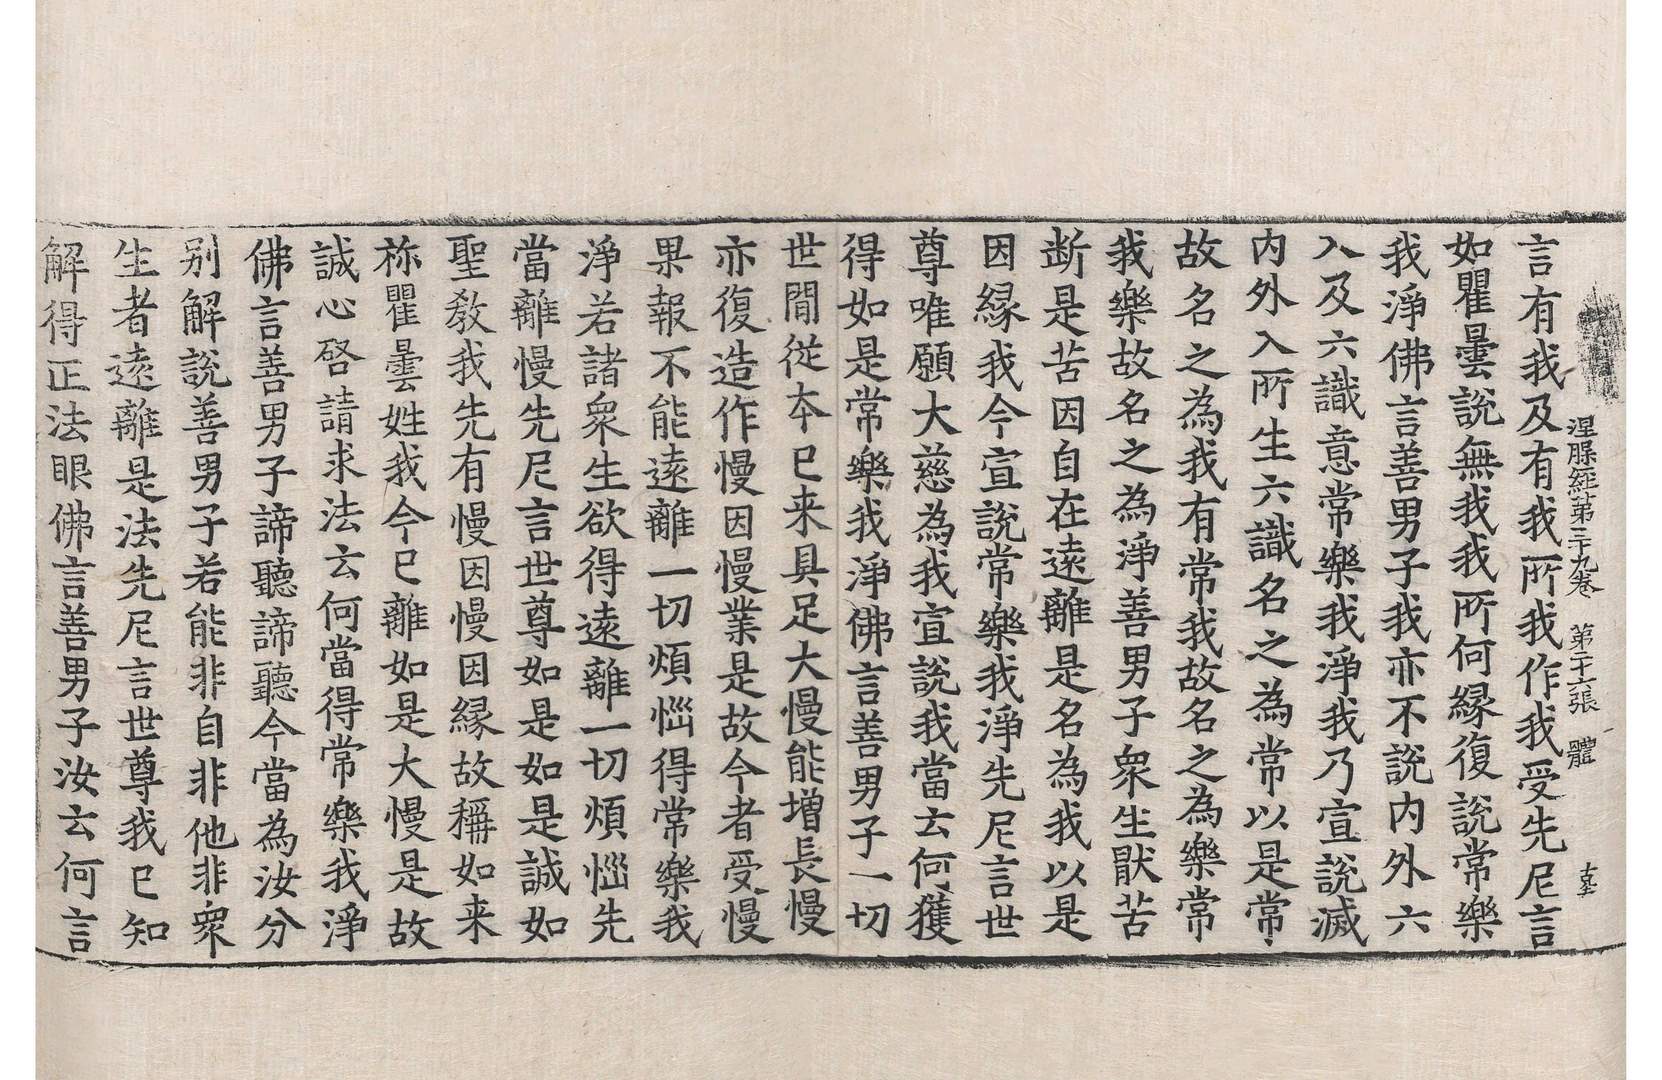 涅槃經第三十九卷 第二十六張 體
言有我及有我所我作我受先尼言
如瞿曇說無我我所何緣復說常樂
我淨佛言善男子我亦不說內外六
入及六識意常樂我淨我乃宣說滅
內外入所生六識名之為常以是常
故名之為我有常我故名之為樂常
我樂故名之為淨善男子衆生猒苦
断是苦因自在遠離是名為我以是
因縁我今宣說常樂我淨先尼言世
尊唯願大慈為我宣說我當云何獲
得如是常樂我淨佛言善男子一切
世間從本已来具足大慢能增長慢
亦復造作慢因慢業是故今者受慢
果報不能遠離一切煩惱得常樂我
淨若諸衆生欲得遠離一切煩惱先
當離慢先尼言世尊如是如是誠如
聖教我先有慢因慢因縁故稱如来
祢瞿曇姓我今已離如是大慢是故
誠心啓請求法云何當得常樂我淨
佛言善男子諦聽諦聽今當為汝分
别解說善男子若能非自非他非衆
生者遠離是法先尼言世尊我已知
解得正法眼佛言善男子汝云何言